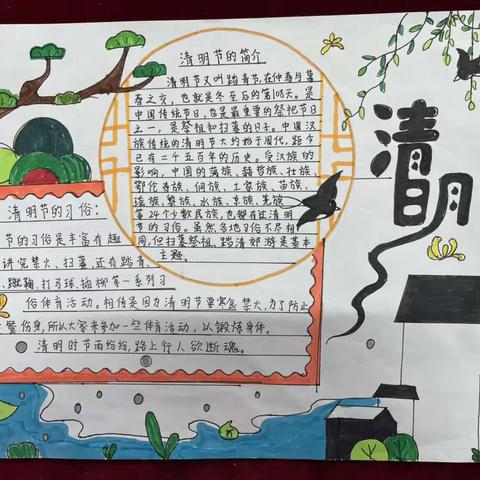 清明
清明节的简介
清明节又叫踏青节,在仲春与暮
春之交,也就是冬至后的第108天。是
中国传统节日,也是最重要的祭祀节日
之一,是祭祖和扫墓的日子。中国汉
族传统的清明节大约始于周代,距今
已有二千五百年的历史。受汉族的
影响,中国的满族、赫哲族、壮族、
鄂伦春族、侗族、土家族、苗族、
瑶族、黎族、水族、京族、羌族
等24个少数民族,也都有过清明
节的习俗。虽然各地习俗不尽相
同,但扫墓祭祖、踏清郊游是基本
主题。
清明节的习俗:
节的习俗是丰富有趣
讲究禁火、扫墓,还有踏青、
、蹴鞠、打马球、插柳等一系列习
俗体育活动。相传是因为清明节要寒食禁火,为了防止
餐伤身,所以大家来参加一些体育活动,以锻炼身体。
清明时节雨纷纷,路上行人欲断魂。